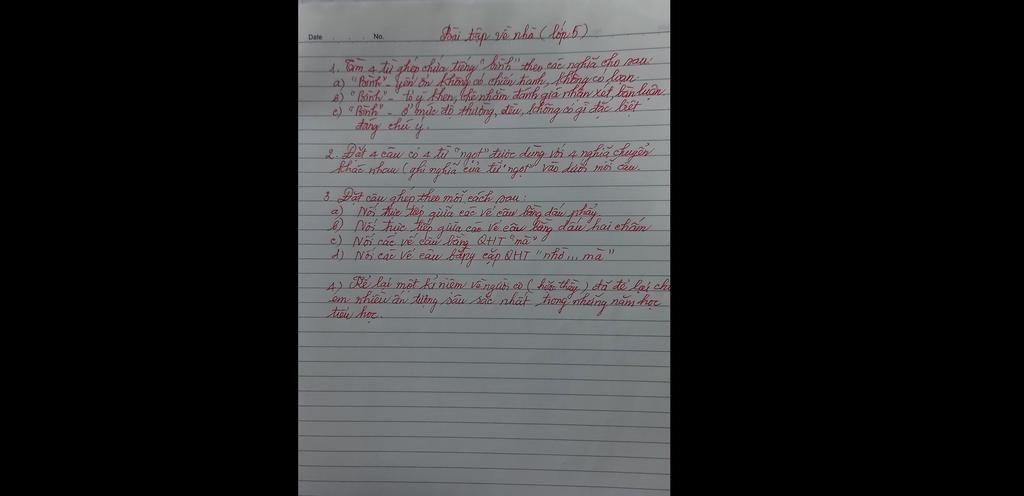 Date . . . No.
Bài tập về nhà (lớp 5)
1. Tìm 4 từ ghép chứa tiếng "bình" theo các nghĩa cho sau:
a) "Bình" - yên ổn không có chiến tranh, không có loạn.
b) "Bình" - tỏ ý khen, chê nhằm đánh giá nhận xét, bàn luận
c) "Bình" - ở mức độ thường, đều, không có gì đặc biệt
đáng chú ý.
2. Đặt 4 câu có 4 từ "ngọt" được dùng với 4 nghĩa chuyển
khác nhau (ghi nghĩa của từ "ngọt" vào dưới mỗi câu.
3. Đặt câu ghép theo mỗi cách sau:
a) Nối trực tiếp giữa các vế câu bằng dấu phẩy
b) Nối trực tiếp giữa các vế câu bằng dấu hai chấm
c) Nối các vế câu bằng QHT "mà"
d) Nối các vế câu bằng cặp QHT "nhờ... mà"
4.) Kể lại một kỉ niệm về người cô (hoặc thầy) đã để lại cho
em nhiều ấn tượng sâu sắc nhất trong những năm học
tiểu học.